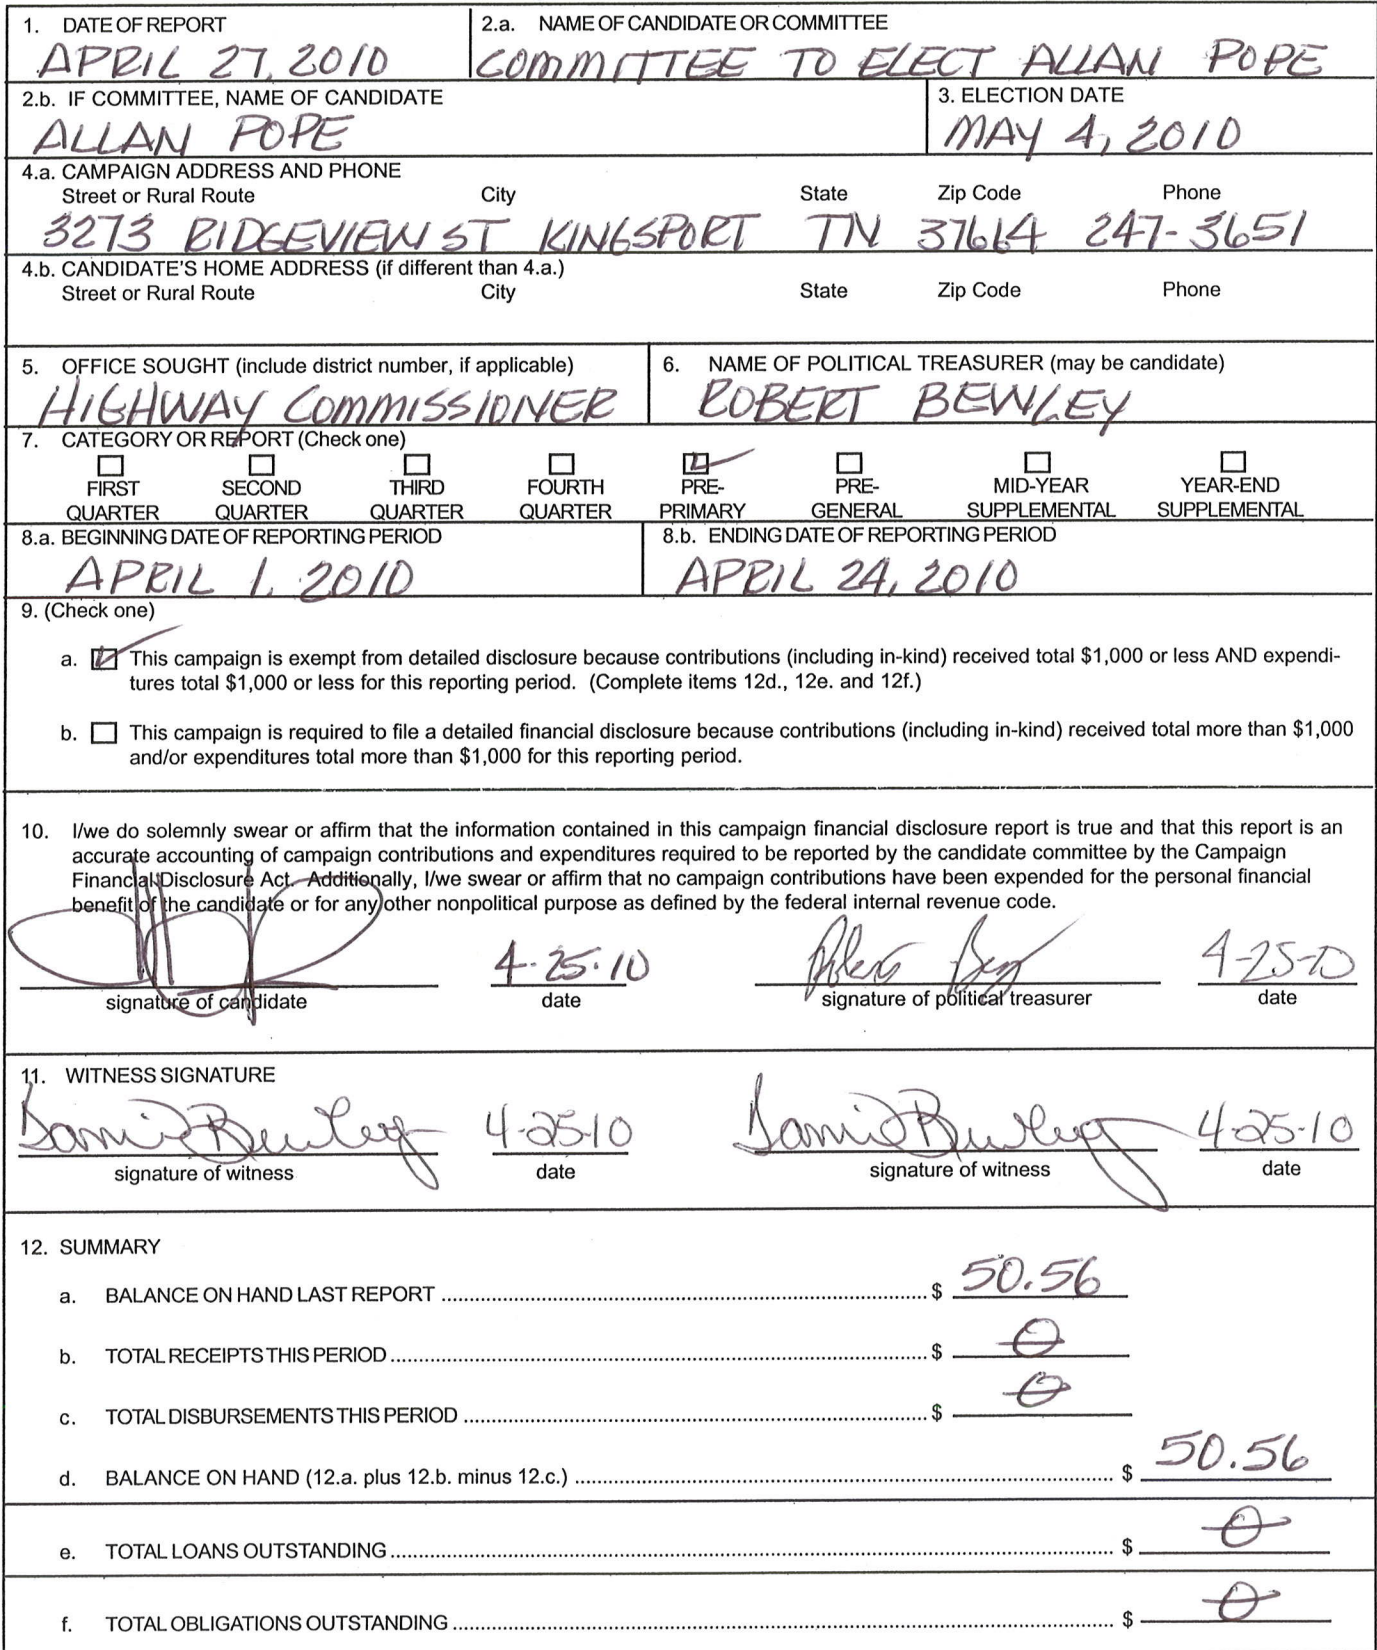 1. DATE OF REPORT
APRIL 27, 2010
2.a. NAME OF CANDIDATE OR COMMITTEE
COMMITTEE TO ELECT ALLAN POPE
2.b. IF COMMITTEE, NAME OF CANDIDATE
ALLAN POPE
3. ELECTION DATE
MAY 4, 2010
4.a. CAMPAIGN ADDRESS AND PHONE
Street or Rural Route City State Zip Code Phone
3273 RIDGEVIEW ST KINGSPORT TN 37664 247-3651
4.b. CANDIDATE'S HOME ADDRESS (if different than 4.a.)
Street or Rural Route City State Zip Code Phone
5. OFFICE SOUGHT (include district number, if applicable)
HIGHWAY COMMISSIONER
6. NAME OF POLITICAL TREASURER (may be candidate)
ROBERT BEWLEY
7. CATEGORY OR REPORT (Check one)
FIRST SECOND THIRD FOURTH PRE- PRE- MID-YEAR YEAR-END
QUARTER QUARTER QUARTER QUARTER PRIMARY GENERAL SUPPLEMENTAL SUPPLEMENTAL
8.a. BEGINNING DATE OF REPORTING PERIOD
APRIL 1, 2010
8.b. ENDING DATE OF REPORTING PERIOD
APRIL 24, 2010
9. (Check one)
a. This campaign is exempt from detailed disclosure because contributions (including in-kind) received total $1,000 or less AND expendi-
tures total $1,000 or less for this reporting period. (Complete items 12d., 12e. and 12f.)
b. This campaign is required to file a detailed financial disclosure because contributions (including in-kind) received total more than $1,000
and/or expenditures total more than $1,000 for this reporting period.
10. I/we do solemnly swear or affirm that the information contained in this campaign financial disclosure report is true and that this report is an
accurate accounting of campaign contributions and expenditures required to be reported by the candidate committee by the Campaign
Financial Disclosure Act. Additionally, I/we swear or affirm that no campaign contributions have been expended for the personal financial
benefit of the candidate or for any other nonpolitical purpose as defined by the federal internal revenue code.
4-25-10 4-25-10
signature of candidate date signature of political treasurer date
11. WITNESS SIGNATURE
Bewley 4-25-10 Bewley 4-25-10
signature of witness date signature of witness date
12. SUMMARY
a. BALANCE ON HAND LAST REPORT $ 50.56
b. TOTAL RECEIPTS THIS PERIOD $ 0
c. TOTAL DISBURSEMENTS THIS PERIOD $ 0
d. BALANCE ON HAND (12.a. plus 12.b. minus 12.c.) $ 50.56
e. TOTAL LOANS OUTSTANDING $ 0
f. TOTAL OBLIGATIONS OUTSTANDING $ 0